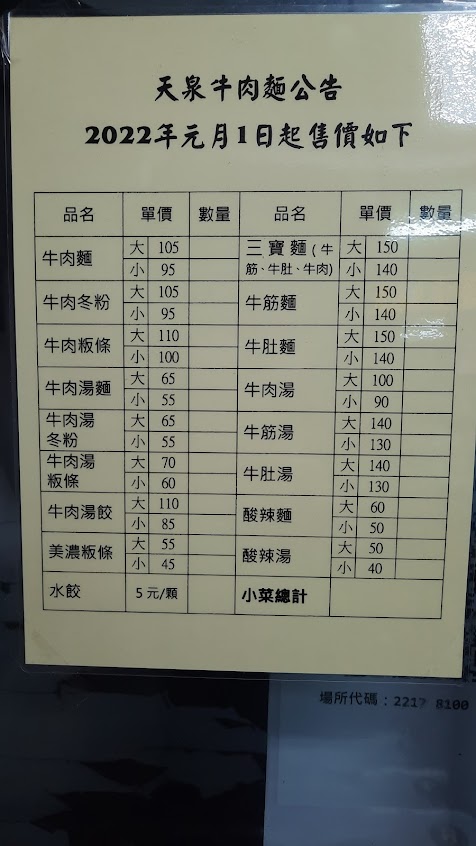 天泉牛肉麵公告
2022年元月1日起售價如下
品名 單價 數量 品名 單價 數量
牛肉麵 大 105 三寶麵(牛筋、牛肚、牛肉) 大 150
小 95 小 140
牛肉冬粉 大 105 牛筋麵 大 150
小 95 小 140
牛肉粄條 大 110 牛肚麵 大 150
小 100 小 140
牛肉湯麵 大 65 牛肉湯 大 100
小 55 小 90
牛肉湯冬粉 大 65 牛筋湯 大 140
小 55 小 130
牛肉湯粄條 大 70 牛肚湯 大 140
小 60 小 130
牛肉湯餃 大 110 酸辣麵 大 60
小 85 小 50
美濃粄條 大 55 酸辣湯 大 50
小 45 小 40
水餃 5元/顆 小菜總計
場所代碼：2217 8100